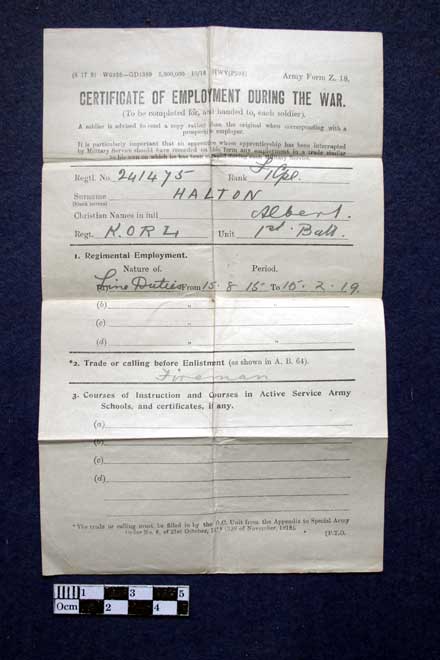 Army Form Z. 18.
CERTIFICATE OF EMPLOYMENT DURING THE WAR.
(To be completed for, and handed to, each soldier).
A soldier is advised to send a copy rather than the original when corresponding with a
prospective employer.
It is particularly important that an apprentice whose apprenticeship has been interrupted
by Military Service should have recorded on this form any employment in a trade similar
to his own on which he has been engaged during such Military Service.
Regtl. No. 241475 Rank L/Cpl.
Surname HALTON
(Block letters)
Christian Names in full Albert.
Regt. K.O.R.L. Unit 1st Batt.
1. Regimental Employment.
Nature of. Period.
Line Duties From 15·8·15 To 15·2·19.
(b) " "
(c) " "
(d) " "
*2. Trade or calling before Enlistment (as shown in A. B. 64).
Fireman
3. Courses of Instruction and Courses in Active Service Army
Schools, and certificates, if any.
(a)
(b)
(c)
(d)
* The trade or calling must be filled in by the O.C. Unit from the Appendix to Special Army
Order No. 8, of 21st October,
[P.T.O.
1 3 5
0cm 2 4